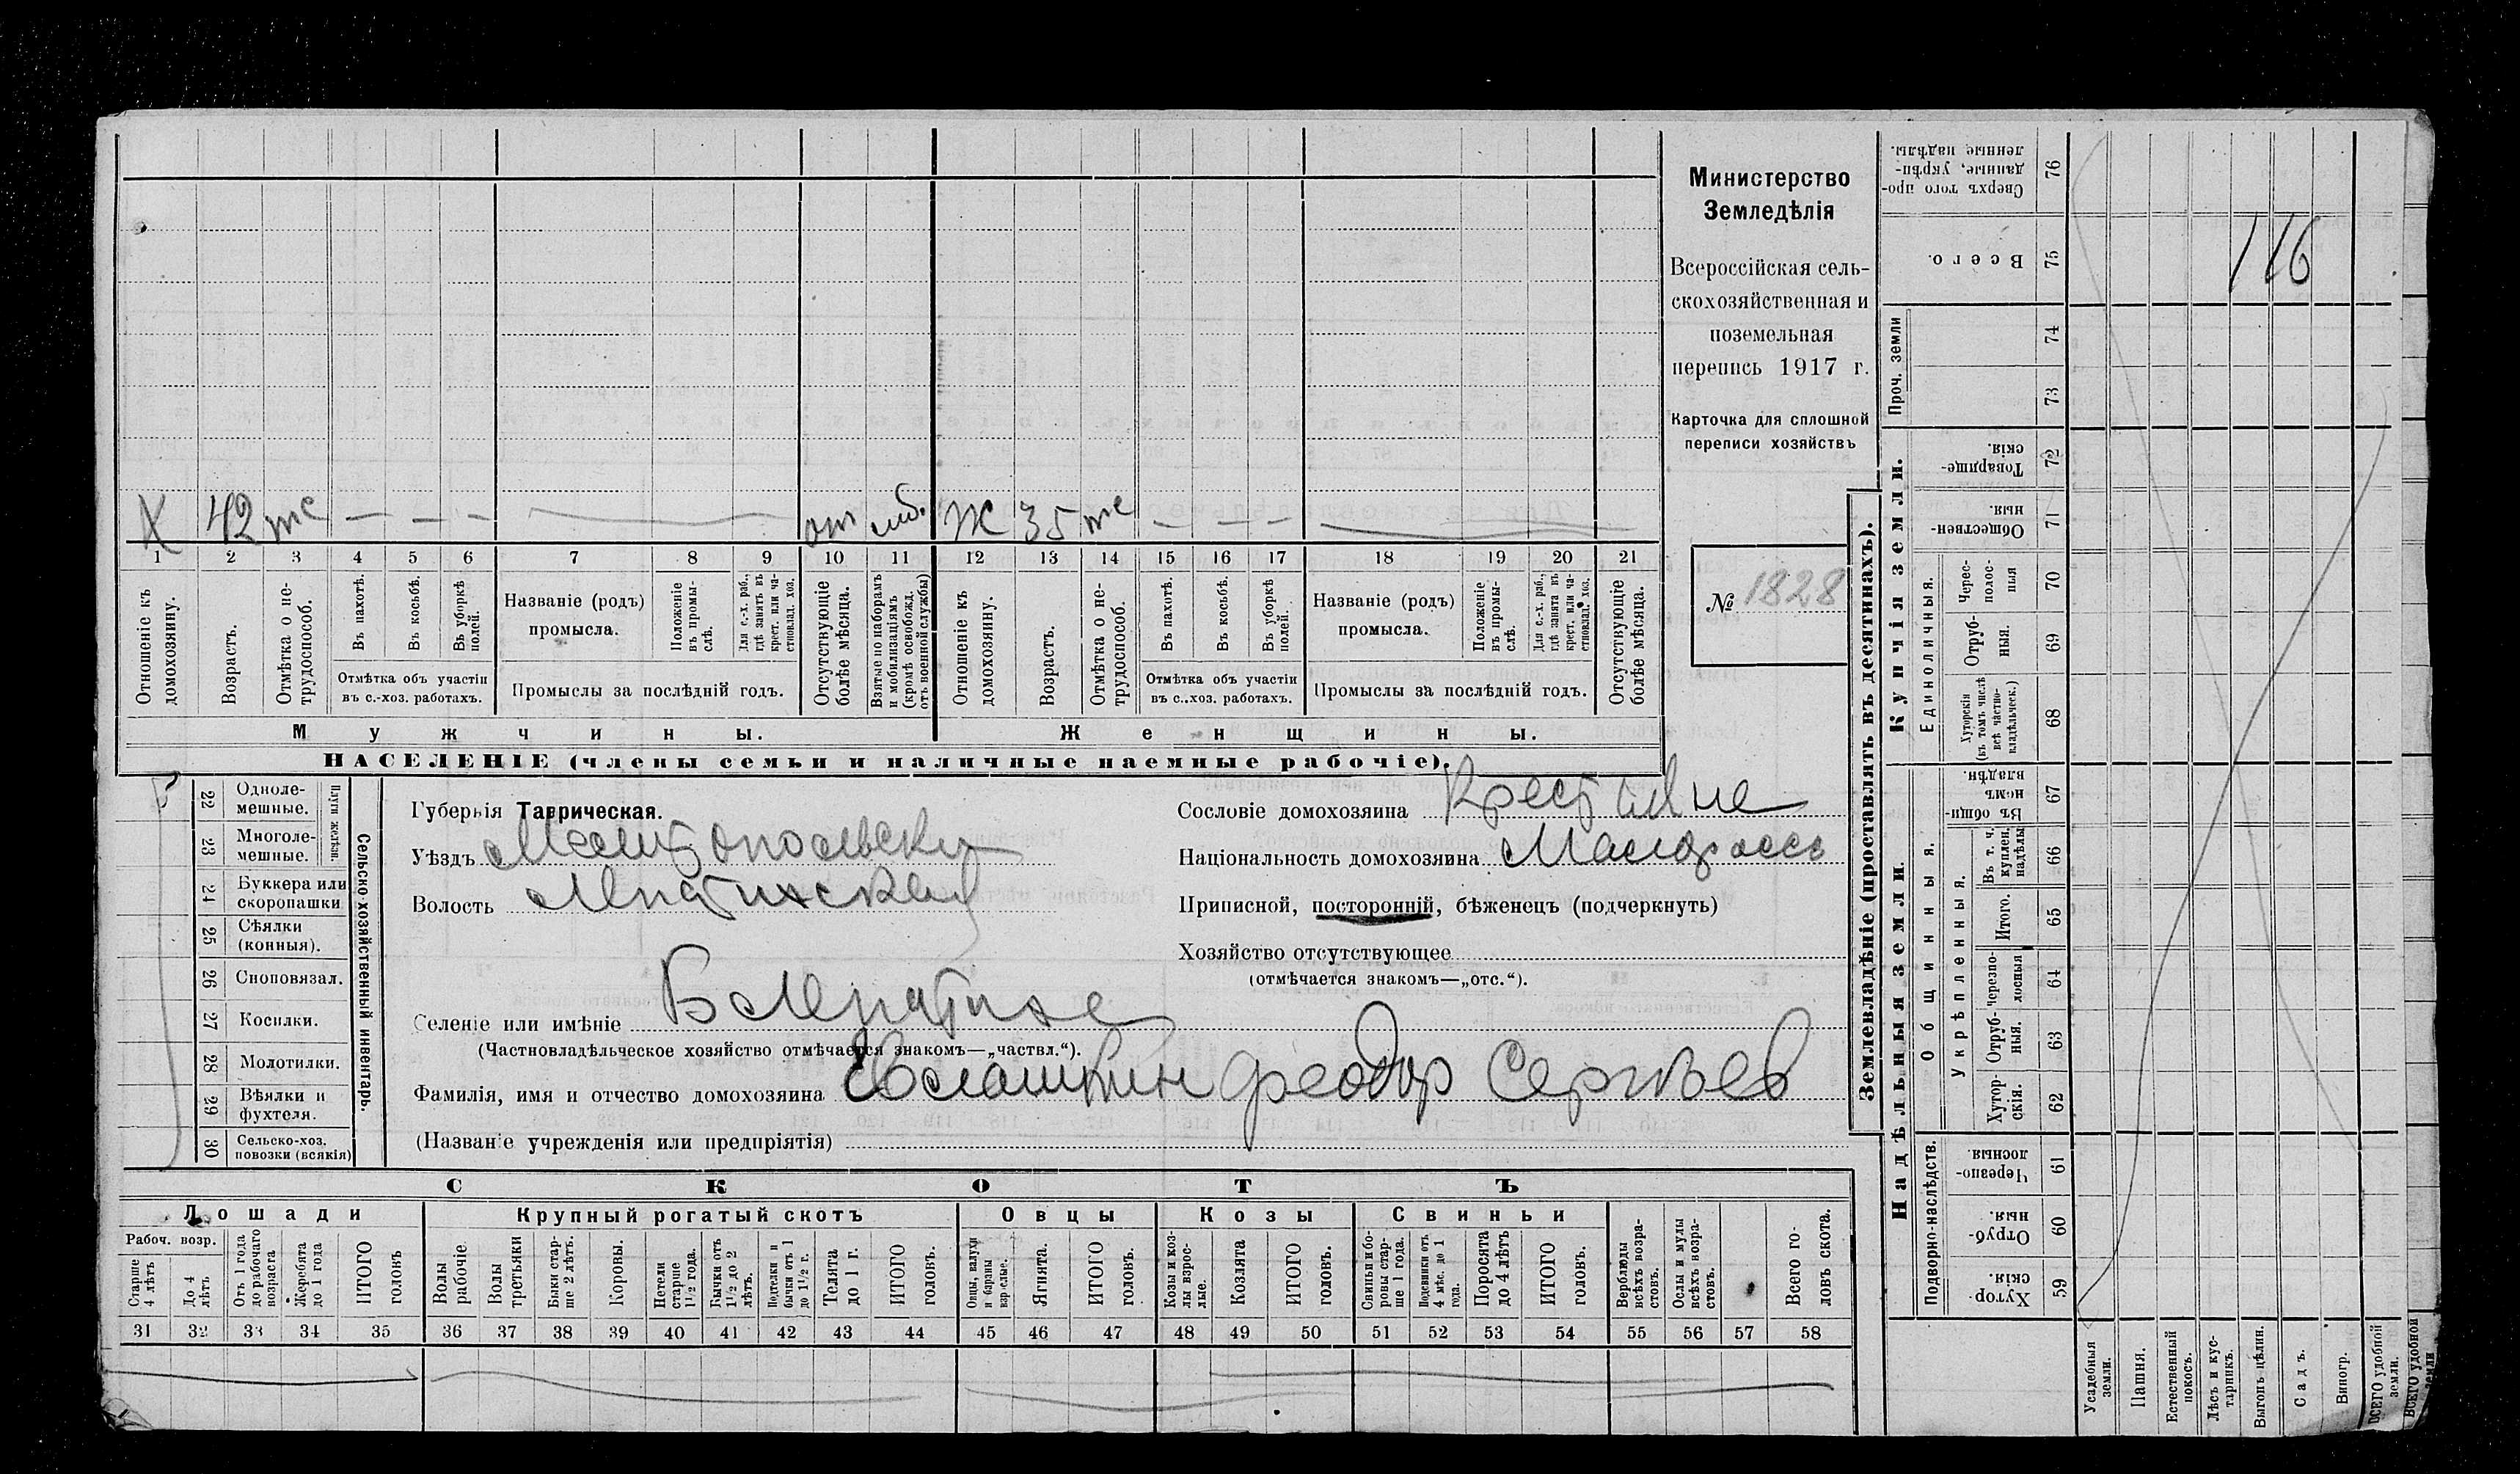 Министерство
Земледѣлія
Всероссійская сель-
скохозяйственная и
поземельная
перепись 1917 г.
Карточка для сплошной
переписи хозяйствъ
№ 1828
Х 42 — — — от моб. Ж 35 — — —
1 2 3 4 5 6 7 8 9 10 11 12 13 14 15 16 17 18 19 20 21
Отношеніе къ домохозяину.
Возрастъ.
Отмѣтка о не-трудоспособ.
Въ пахотѣ.
Въ косьбѣ.
Въ уборкѣ полей.
Отмѣтка объ участіи
въ с.-хоз. работахъ.
Названіе (родъ)
промысла.
Положеніе въ промы-слѣ.
Для с.-х. раб., гдѣ занятъ въ крест. или ча-стновлад. хоз.
Промыслы за послѣдній годъ.
Отсутствующіе болѣе мѣсяца.
Взятые по наборамъ и мобилизаціямъ (кромѣ освобожд. отъ военной службы)
Отношеніе къ домохозяину.
Возрастъ.
Отмѣтка о не-трудоспособ.
Въ пахотѣ.
Въ косьбѣ.
Въ уборкѣ полей.
Отмѣтка объ участіи
въ с..хоз. работахъ.
Названіе (родъ)
промысла.
Положеніе въ промы-слѣ.
Для с.-х. раб., гдѣ занята въ крест. или ча-стновлад. хоз.
Промыслы за послѣдній годъ.
Отсутствующіе болѣе мѣсяца.
Мужчины. Женщины.
НАСЕЛЕНІЕ (члены семьи и наличные наемные рабочіе).
Сельско-хозяйственный инвентарь.
Плуги желѣзн.
22 Одноле-мешные.
23 Многоле-мешные.
24 Буккера или скоропашки
25 Сѣялки (конныя).
26 Сноповязал.
27 Косилки.
28 Молотилки.
29 Вѣялки и фухтеля.
30 Сельско-хоз. повозки (всякія)
Губернія Таврическая.
Уѣздъ Мелитопольски
Волость Лепатихская
Селеніе или имѣніе Б Лепатиха
(Частновладѣльческое хозяйство отмѣчается знакомъ—„частвл.“).
Сословіе домохозяина Крестьяне
Національность домохозяина Малоросс
Приписной, посторонній, бѣженецъ (подчеркнуть)
Хозяйство отсутствующее
(отмѣчается знакомъ—„отс.“).
Фамилія, имя и отчество домохозяина Евлашкин Феодор Сергѣев
(Названіе учрежденія или предпріятія)
СКОТЪ
Лошади Крупный рогатый скотъ Овцы Козы Свиньи
Рабоч. возр.
Старше 4 лѣтъ
До 4 лѣтъ
Отъ 1 года до рабочаго возраста
Жеребята до 1 года
ИТОГО головъ
Волы рабочіе
Волы третьяки
Быки стар-ше 2 лѣтъ.
Коровы.
Нетели старше 1½ года.
Бычки отъ 1½ до 2 лѣтъ.
Подтелки и бычки отъ 1 до 1½ г.
Телята до 1 г.
ИТОГО головъ.
Овцы, валухи и бараны взрослые.
Ягнята.
ИТОГО головъ.
Козы и коз-лы взрос-лые.
Козлята
ИТОГО головъ.
Свиньи и бо-ровы стар-ше 1 года.
Подсвинки отъ 4 мѣс. до 1 года.
Поросята до 4 лѣтъ
ИТОГО головъ.
Верблюды всѣхъ возра-стовъ.
Ослы и мулы всѣхъ возра-стовъ.
Всего го-ловъ скота.
31 32 33 34 35 36 37 38 39 40 41 42 43 44 45 46 47 48 49 50 51 52 53 54 55 56 57 58
Землевладѣніе (проставлять въ десятинахъ).
Купчія земли.
Надѣльныя земли.
Сверхъ того про-данные, укрѣп-ленные надѣлы. 76
Всего. 75
116
Проч. земли 74 73
Товарище-скія. 72
Обществен-ныя. 71
Единоличныя.
Черес-полос-ныя 70
Отруб-ныя. 69
Хуторскія (въ томъ числѣ всѣ частно-владѣльческ.) 68
Общинныя.
Въ общи-номъ владѣн. 67
Укрѣпленныя.
Въ т. ч. куплен. надѣлы 66
Итого. 65
Черезпо-лосныя 64
Отруб-ныя. 63
Хутор-скія. 62
Подворно-наслѣдств.
Черезпо-лосныя. 61
Отруб-ныя. 60
Хутор-скія. 59
Усадебныя земли.
Пашня.
Естественный покосъ.
Лѣсъ и кус-тарникъ.
Выгонъ цѣлин.
Садъ.
Виногр.
ВСЕГО удобной земли.
ВСЕГО удобной земли